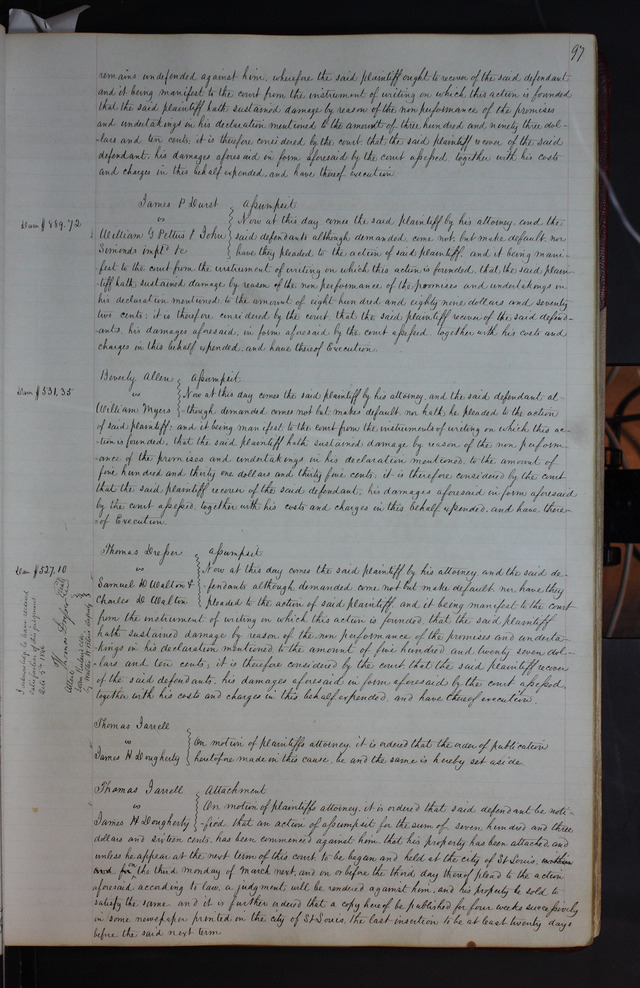 97
remains undefended against him, wherefore the said plaintiff ought to recover of the said defendant
and it being manifest to the court from the instrument of writing on which this action is founded
that the said plaintiff hath sustained damage by reason of the non performance of the promises
and undertakings in his declaration mentioned to the amount of three hundred and ninety three dol-
-lars and ten cents; it is therefore considered by the court that the said plaintiff recover of the said
defendant, his damages aforesaid in form aforesaid by the court assessed, together with his costs
and charges in this behalf expended, and have thereof execution
James P Durst
assumpsit
vs
Now at this day comes the said plaintiff by his attorney, and the
Dam $889.72
William G Pettus & John
said defendants although demanded, come not, but make default, nor
Simonds impld &c
have they pleaded to the action of said plaintiff, and it being mani-
fest to the court from the instrument of writing on which this action is founded, that the said plain-
tiff hath sustained damage by reason of the non performance of the promises and undertakings in
his declaration mentioned to the amount of eight hundred and eighty nine dollars and seventy
two cents; it is therefore considered by the court, that the said plaintiff recover of the said defend-
-ants, his damages aforesaid, in form aforesaid by the court assessed, together with his costs and
charges in this behalf expended, and have thereof Execution.
Beverly Allen
assumpsit
vs
Now at this day comes the said plaintiff by his attorney, and the said defendant al-
Dam $531,35
William Myers
-though demanded comes not but makes default, nor hath he pleaded to the action
of said plaintiff; and it being manifest to the court from the instruments of writing on which this ac-
-tion is founded, that the said plaintiff hath sustained damage by reason of the non perform-
-ance of the promises and undertakings in his declaration mentioned, to the amount of
five hundred and thirty one dollars and thirty five cents; it is therefore considered by the court
that the said plaintiff recover of the said defendant, his damages aforesaid in form aforesaid
by the court assessed, together with his costs and charges in this behalf expended, and have there-
-of Execution.
Thomas Dresser
assumpsit
vs
Now at this day comes the said plaintiff by his attorney, and the said de-
Dam $527.10
Samuel D Walton &
-fendants although demanded come not but make default, nor have they
Charles D Walton
pleaded to the action of said plaintiff, and it being manifest to the court
from the instrument of writing on which this action is founded, that the said plaintiff
hath sustained damage by reason of the non performance of the promises and underta-
-kings in his declaration mentioned to the amount of five hundred and twenty seven dol-
-lars and ten cents; it is therefore considered by the court that the said plaintiff recover
of the said defendants, his damages aforesaid in form aforesaid by the court assessed,
together with his costs and charges in this behalf expended, and have thereof execution.
Thomas Farrell
vs
On motion of plaintiffs attorney, it is ordered that the order of publication
James H Dougherty
heretofore made in this cause, be and the same is hereby set aside
Thomas Farrell
Attachment
vs
On motion of plaintiffs attorney, it is ordered that said defendant be noti-
James H Dougherty
-fied, that an action of assumpsit for the sum of seven hundred and three
dollars and sixteen cents, has been commenced against him, that his property has been attached, and
unless he appear at the next term of this court to be began and held at the city of St Louis,
on the third Monday of March next, and on or before the third day thereof plead to the action
aforesaid according to law, a judgment will be rendered against him, and his property be sold to
satisfy the same and it is further ordered that a copy hereof be published for four weeks successively
in some newspaper printed in the city of St Louis, the last insertion to be at least twenty days
before the said next term